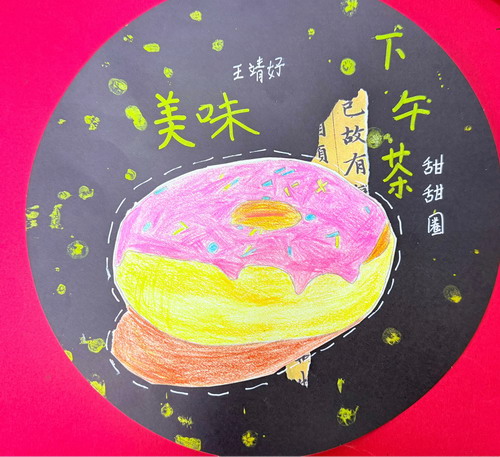 下午茶
王靖好
美味
甜甜圈
已故有